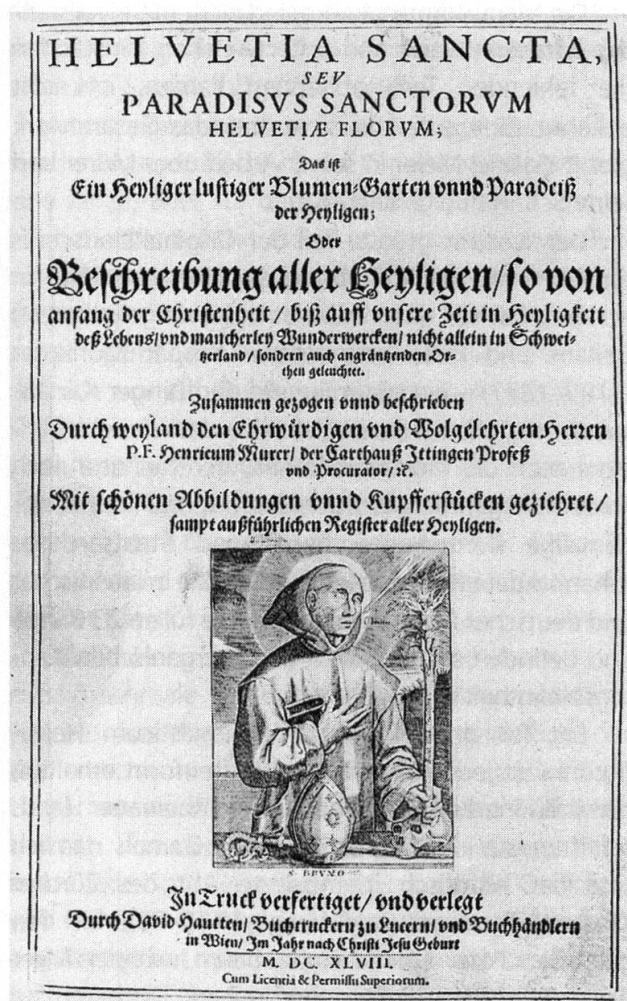 HELVETIA SANCTA,
SEV
PARADISVS SANCTORVM
HELVETIÆ FLORVM;
Das ist
Ein Heyliger lustiger Blumen-Garten vnnd Paradeiß
der Heyligen;
Oder
Beschreibung aller Heyligen/ so von
anfang der Christenheit/ biß auff vnsere Zeit in Heyligkeit
deß Lebens/ vnd mancherley Wunderwercken/ nicht allein in Schwei-
tzerland/ sondern auch angräntzenden Or-
then geleuchtet.
Zusammen gezogen vnnd beschrieben
Durch weyland den Ehrwürdigen vnd Wolgelehrten Herren
P. F. Henricum Murer/ der Carthauß Ittingen Profeß
vnd Procurator/ ꝛc.
Mit schönen Abbildungen vnnd Kupfferstücken geziehret/
sampt außführlichen Register aller Heyligen.
S. BRVNO
In Truck verfertiget/ vnd verlegt
Durch David Hautten/ Buchtruckern zu Lucern/ vnd Buchhändlern
in Wien/ Im Jahr nach Christi Jesu Geburt
M. DC. XLVIII.
Cum Licentia & Permissu Superiorum.